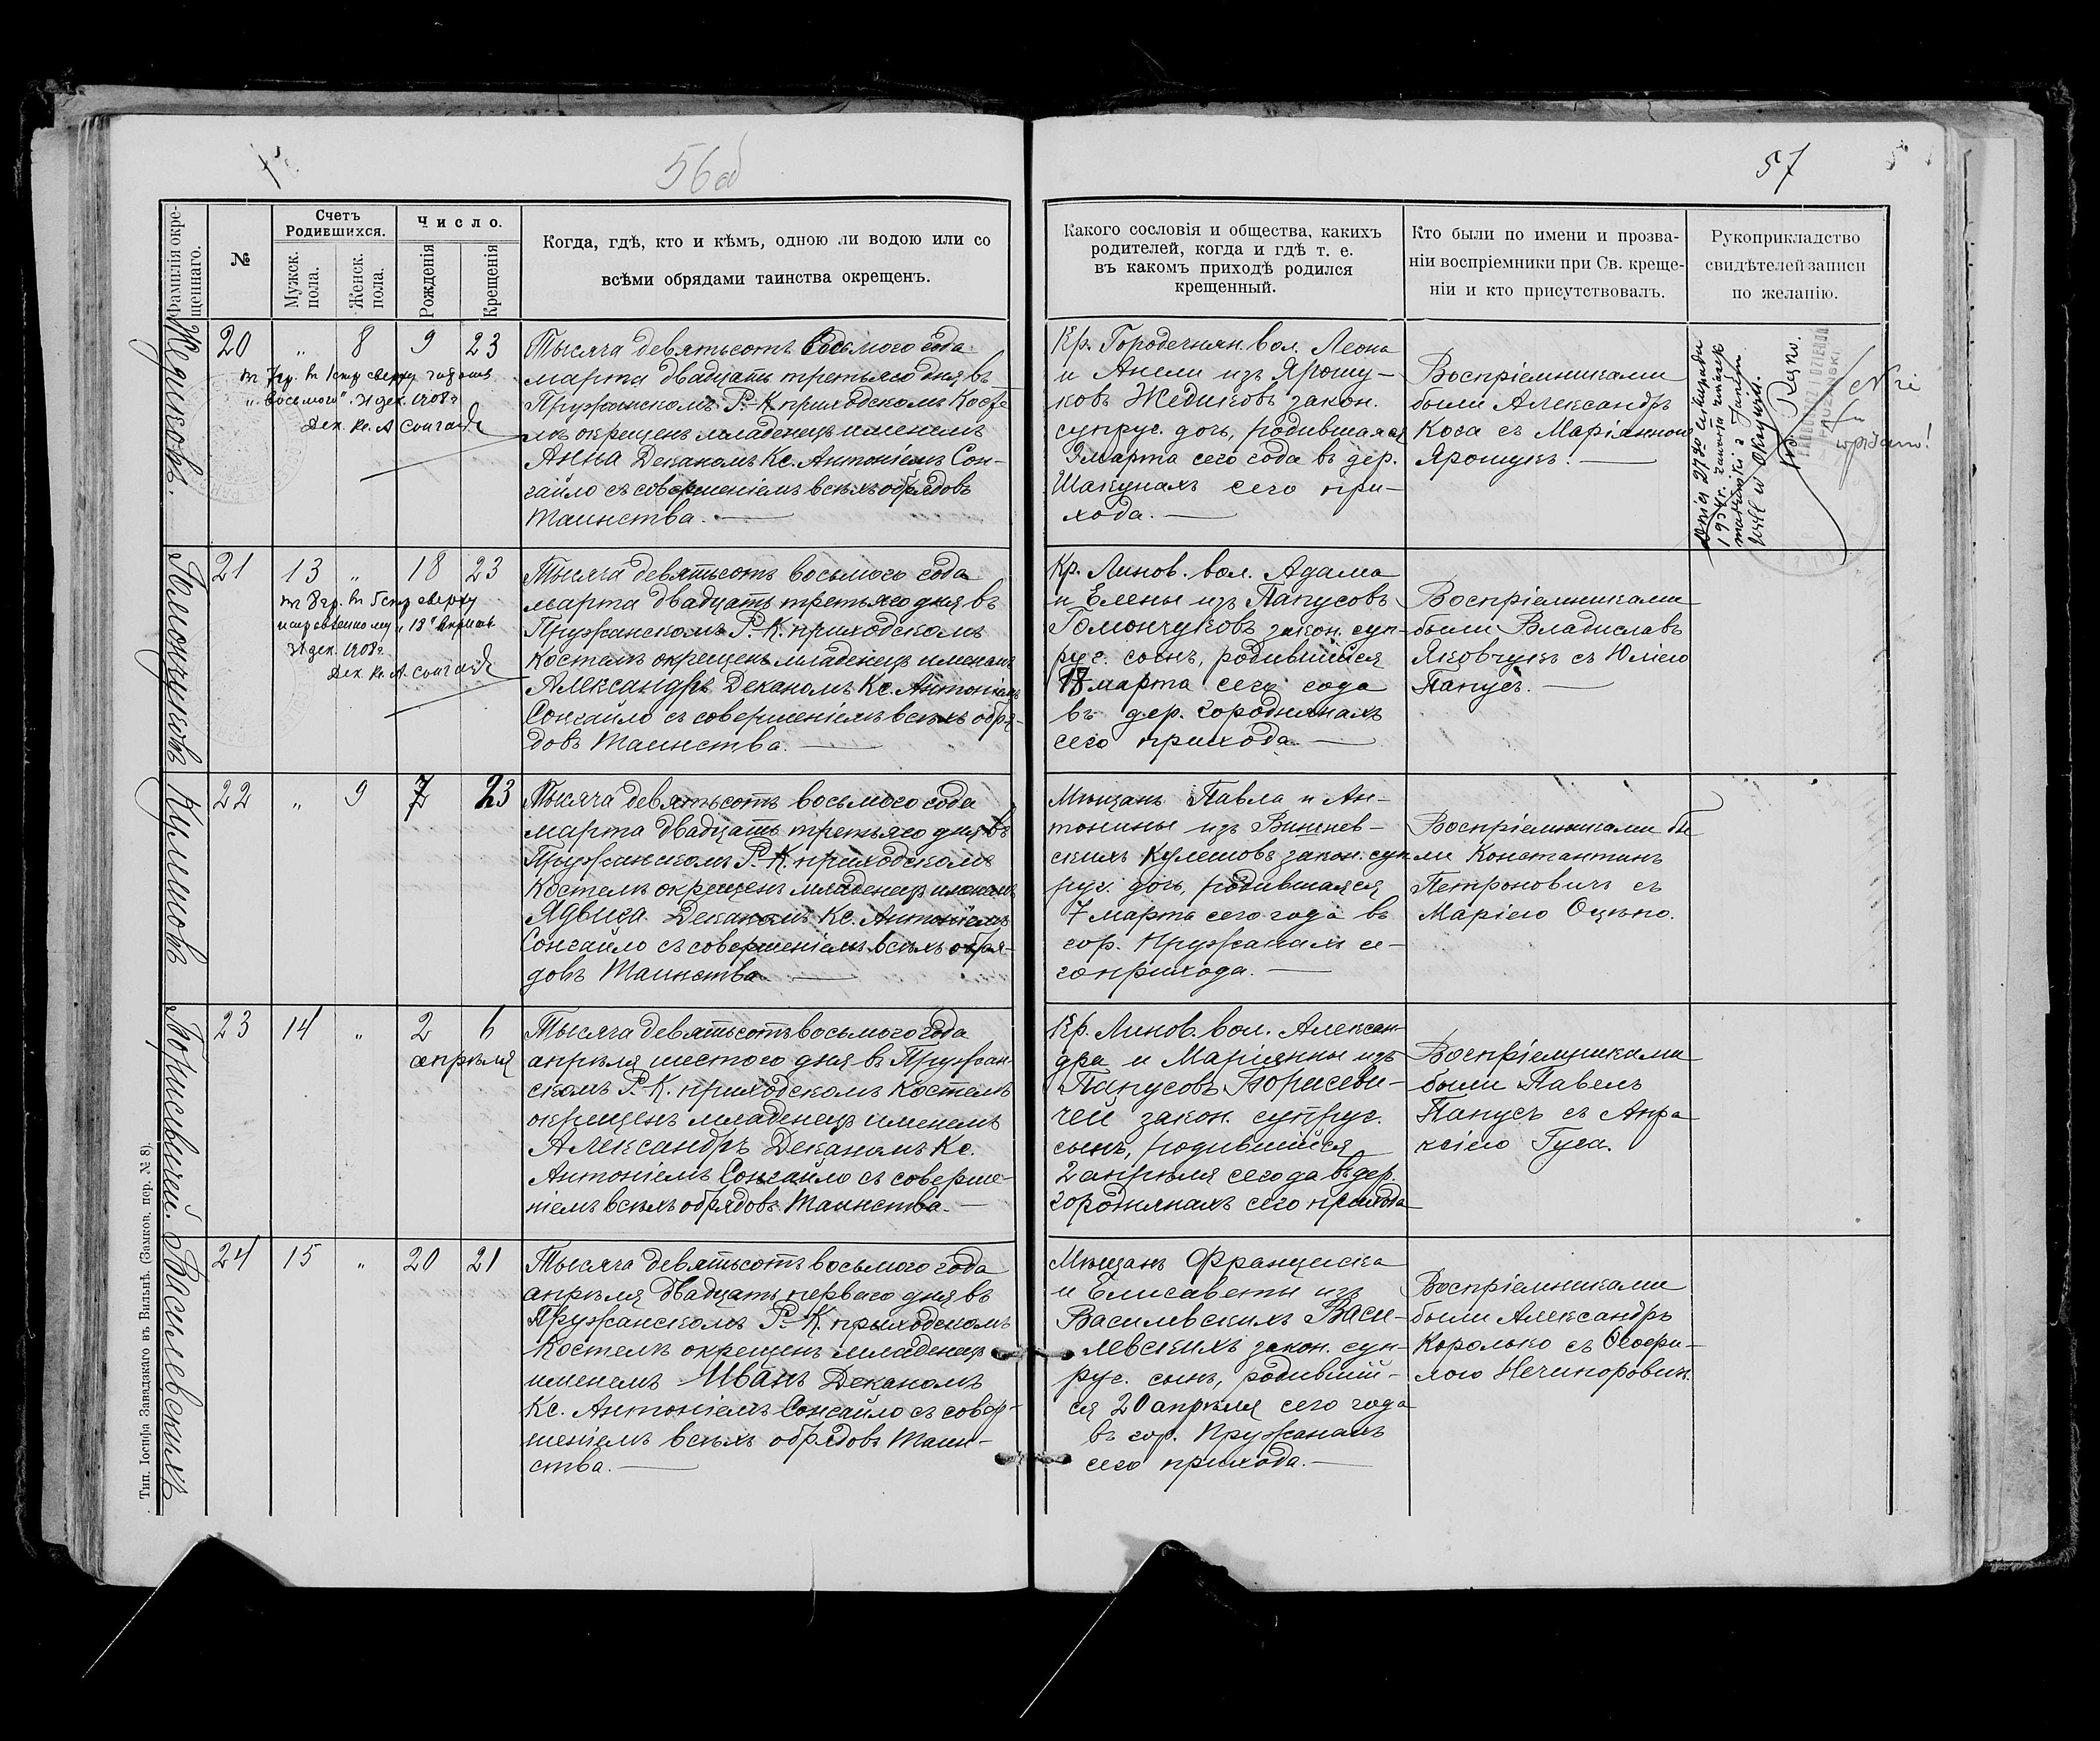 56об
57
Фамилія окрещеннаго.
№
Счетъ Родившихся.
Мужск. пола.
Женск. пола.
Число.
Рожденія
Крещенія
Когда, гдѣ, кто и кѣмъ, одною ли водою или со
всѣми обрядами таинства окрещенъ.
Какого сословія и общества, какихъ
родителей, когда и гдѣ т. е.
въ какомъ приходѣ родился
крещенный.
Кто были по имени и прозва-
ніи воспріемники при Св. креще-
ніи и кто присутствовалъ.
Рукоприкладство
свидѣтелей записи
по желанію.
Жедиковъ.
20 „ 8 9 23
въ 7 гр. въ 1 стр сверху читать
„восьмого". 31 дек. 1908 г
Дек. Кс. А Сонгайло
Тысяча девятьсотъ восьмого года
марта двадцать третьяго дня въ
Пружанскомъ Р.-К. приходскомъ Косте
лѣ окрещенъ младенецъ именемъ
Анна Деканомъ Кс. Антоніемъ Сон-
гайло съ совершеніемъ всѣхъ обрядовъ
Таинства.
Кр. Городечнян. вол. Леона
и Анели изъ Ярошу-
ковъ Жедиковъ закон.
супруг. дочь, родившаяся
9 марта сего года въ дер.
Шакунахъ сего при-
хода.
Воспріемниками
были Александръ
Коса съ Маріанною
Ярошукъ.
Dnia 27go listopada
1934 r.
Nie
wpisano!
Гомончуковъ
21 13 „ 18 23
въ 8 гр. въ 5 стр сверху
исправленному „18" вѣрить
31 дек. 1908 г
Дек. Кс. А. Сонгайло
Тысяча девятьсотъ восьмого года
марта двадцать третьяго дня въ
Пружанскомъ Р.-К. приходскомъ
Костелѣ окрещенъ младенецъ именемъ
Александръ Деканомъ Кс. Антоніемъ
Сонгайло съ совершеніемъ всѣхъ обря-
довъ Таинства.
Кр. Линов. вол. Адама
и Елены изъ Папусовъ
Гомончуковъ закон. суп-
руг. сынъ, родившійся
18 марта сего года
въ дер. Городнянахъ
сего прихода.
Воспріемниками
были Владиславъ
Яковчукъ съ Юліею
Папусъ.
Кулешовъ
22 „ 9 7 23
Тысяча девятьсотъ восьмого года
марта двадцать третьяго дня въ
Пружанскомъ Р.-К. приходскомъ
Костелѣ окрещенъ младенецъ именемъ
Ядвига Деканомъ Кс. Антоніемъ
Сонгайло съ совершеніемъ всѣхъ обря-
довъ Таинства
Мѣщанъ Павла и Ан-
тонины изъ Вишнев-
скихъ Кулешовъ закон. суп
руг. дочь, родившаяся
7 марта сего года въ
гор. Пружанахъ се-
го прихода.
Воспріемниками бы
ли Константинъ
Петроновичъ съ
Маріею Оцѣпо.
Борисевичей.
23 14 „ 2 6
апрѣля
Тысяча девятьсотъ восьмого года
апрѣля шестого дня въ Пружан-
скомъ Р.-К. приходскомъ Костелѣ
окрещенъ младенецъ именемъ
Александръ Деканомъ Кс.
Антоніемъ Сонгайло съ соверше-
ніемъ всѣхъ обрядовъ Таинства.
Кр. Линов. вол. Алексан-
дра и Маріянны изъ
Папусовъ Борисеви-
чей закон. супруг.
сынъ, родившійся
2 апрѣля сего да въ дер.
Городнянахъ сего прихода
Воспріемниками
были Павелъ
Папусъ съ Апра
ксіею Гуса.
Василевскихъ
24 15 „ 20 21
Тысяча девятьсотъ восьмого года
апрѣля двадцать перваго дня въ
Пружанскомъ Р.-К. приходскомъ
Костелѣ окрещенъ младенецъ
именемъ Иванъ Деканомъ
Кс. Антоніемъ Сонгайло съ совер-
шеніемъ всѣхъ обрядовъ Таин-
ства.
Мѣщанъ Франциска
и Елисаветы изъ
Василевскихъ Васи-
левскихъ закон. суп-
руг. сынъ, родивший-
ся 20 апрѣля сего года
въ гор. Пружанахъ
сего прихода.
Воспріемниками
были Александръ
Королько съ Теофи-
лою Нечипоровичъ.
Тип. Іосифа Завадзкаго въ Вильнѣ. (Замков. пер. № 8).